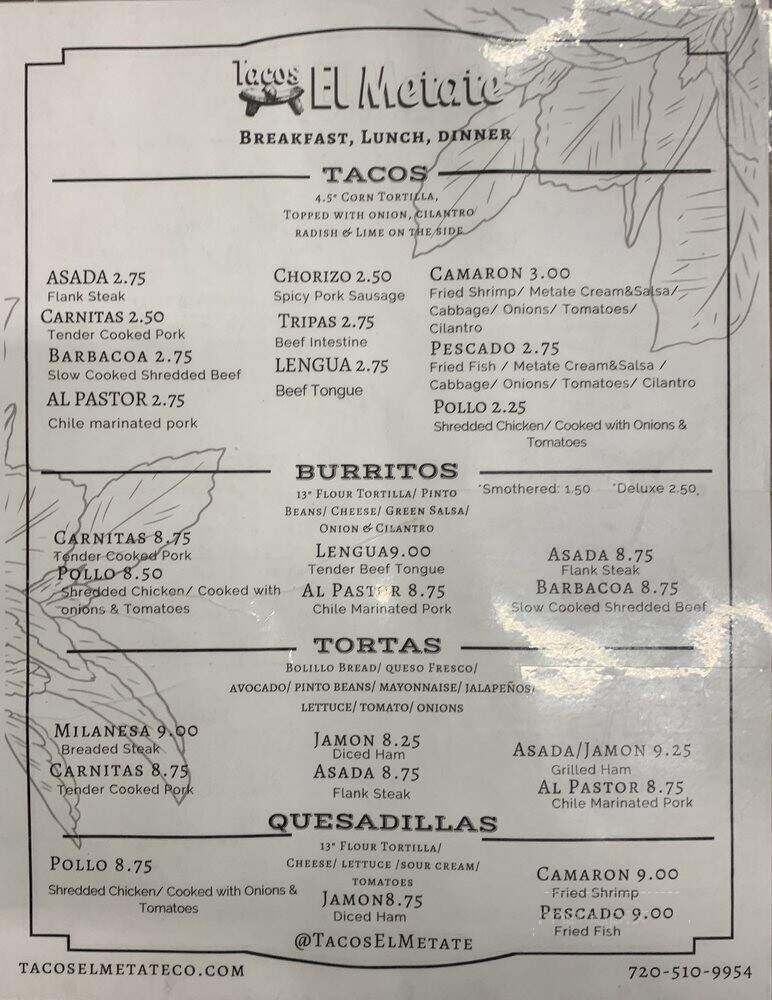 Tacos El Metate
Breakfast, Lunch, dinner
TACOS
4.5" Corn Tortilla,
Topped with onion, cilantro
radish & Lime on the side
ASADA 2.75
Flank Steak
Carnitas 2.50
Tender Cooked Pork
Barbacoa 2.75
Slow Cooked Shredded Beef
AL PASTOR 2.75
Chile marinated pork
Chorizo 2.50
Spicy Pork Sausage
Tripas 2.75
Beef Intestine
LENGUA 2.75
Beef Tongue
Camaron 3.00
Fried Shrimp/ Metate Cream&Salsa/
Cabbage/ Onions/ Tomatoes/
Cilantro
Pescado 2.75
Fried Fish / Metate Cream&Salsa /
Cabbage/ Onions/ Tomatoes/ Cilantro
Pollo 2.25
Shredded Chicken/ Cooked with Onions &
Tomatoes
BURRITOS
13" Flour Tortilla/ Pinto
Beans/ Cheese/ Green Salsa/
Onion & Cilantro
*Smothered: 1.50 *Deluxe 2.50
Carnitas 8.75
Tender Cooked Pork
Pollo 8.50
Shredded Chicken/ Cooked with
onions & Tomatoes
Lengua9.00
Tender Beef Tongue
Al Pastor 8.75
Chile Marinated Pork
Asada 8.75
Flank Steak
Barbacoa 8.75
Slow Cooked Shredded Beef
TORTAS
Bolillo Bread/ queso Fresco/
avocado/ pinto beans/ mayonnaise/ jalapeños/
lettuce/ tomato/ onions
Milanesa 9.00
Breaded Steak
Carnitas 8.75
Tender Cooked Pork
Jamon 8.25
Diced Ham
Asada 8.75
Flank Steak
Asada/Jamon 9.25
Grilled Ham
Al Pastor 8.75
Chile Marinated Pork
QUESADILLAS
13" Flour Tortilla/
Cheese/ lettuce /sour cream/
tomatoes
Pollo 8.75
Shredded Chicken/ Cooked with Onions &
Tomatoes
Jamon8.75
Diced Ham
Camaron 9.00
Fried Shrimp
Pescado 9.00
Fried Fish
@TacosElMetate
tacoselmetateco.com
720-510-9954